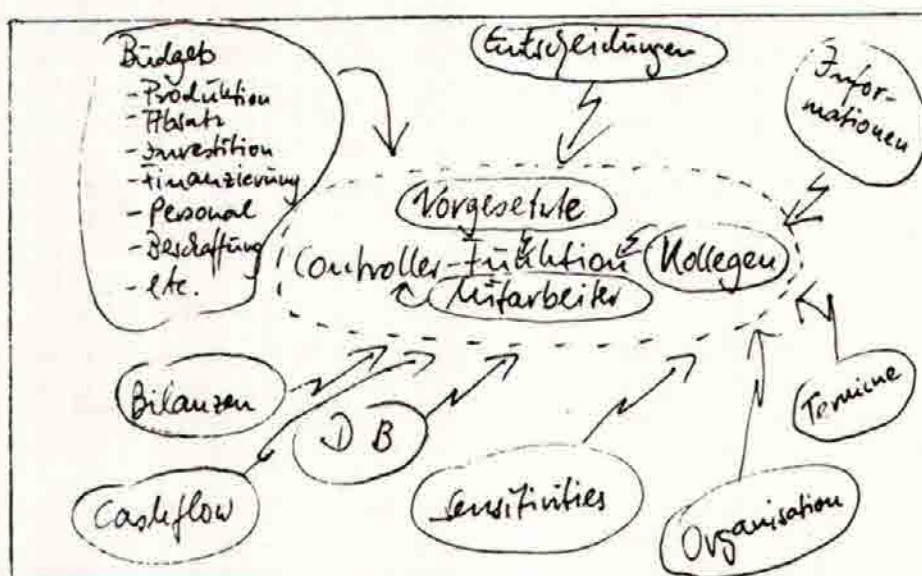 Budgets
- Produktion
- Absatz
- Investition
- Finanzierung
- Personal
- Beschaffung
- etc.
Entscheidungen
Infor-
mationen
Vorgesetzte
Controller-Funktion
Kollegen
Mitarbeiter
Bilanzen
DB
Cashflow
Sensitivities
Organisation
Termine